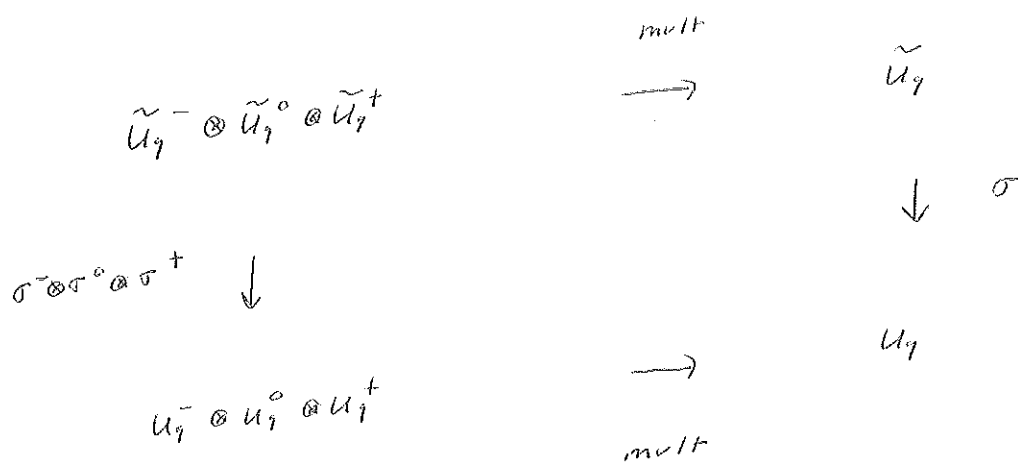 mult
Ũ_q^- ⊗ Ũ_q^0 ⊗ Ũ_q^+ ⟶ Ũ_q
σ^- ⊗ σ^0 ⊗ σ^+ ↓ ↓ σ
U_q^- ⊗ U_q^0 ⊗ U_q^+ ⟶ U_q
mult